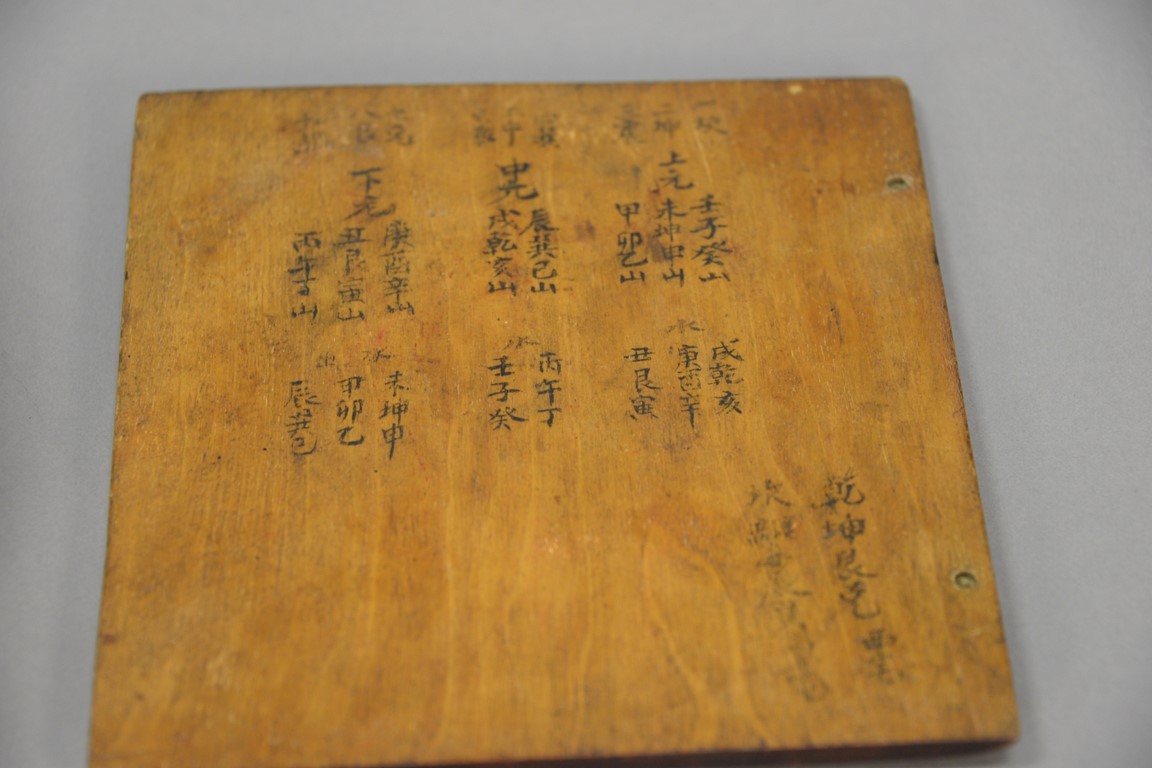 一坎
二坤
三震
上元
壬子癸山
未坤申山
甲卯乙山
水
戌乾亥
庚酉辛
丑艮寅
中元
辰巽巳山
戌乾亥山
水
丙午丁
壬子癸
七兑
八艮
下元
庚酉辛山
丑艮寅山
丙午丁山
水
未坤申
甲卯乙
辰巽巳
乾坤艮兑
坎離